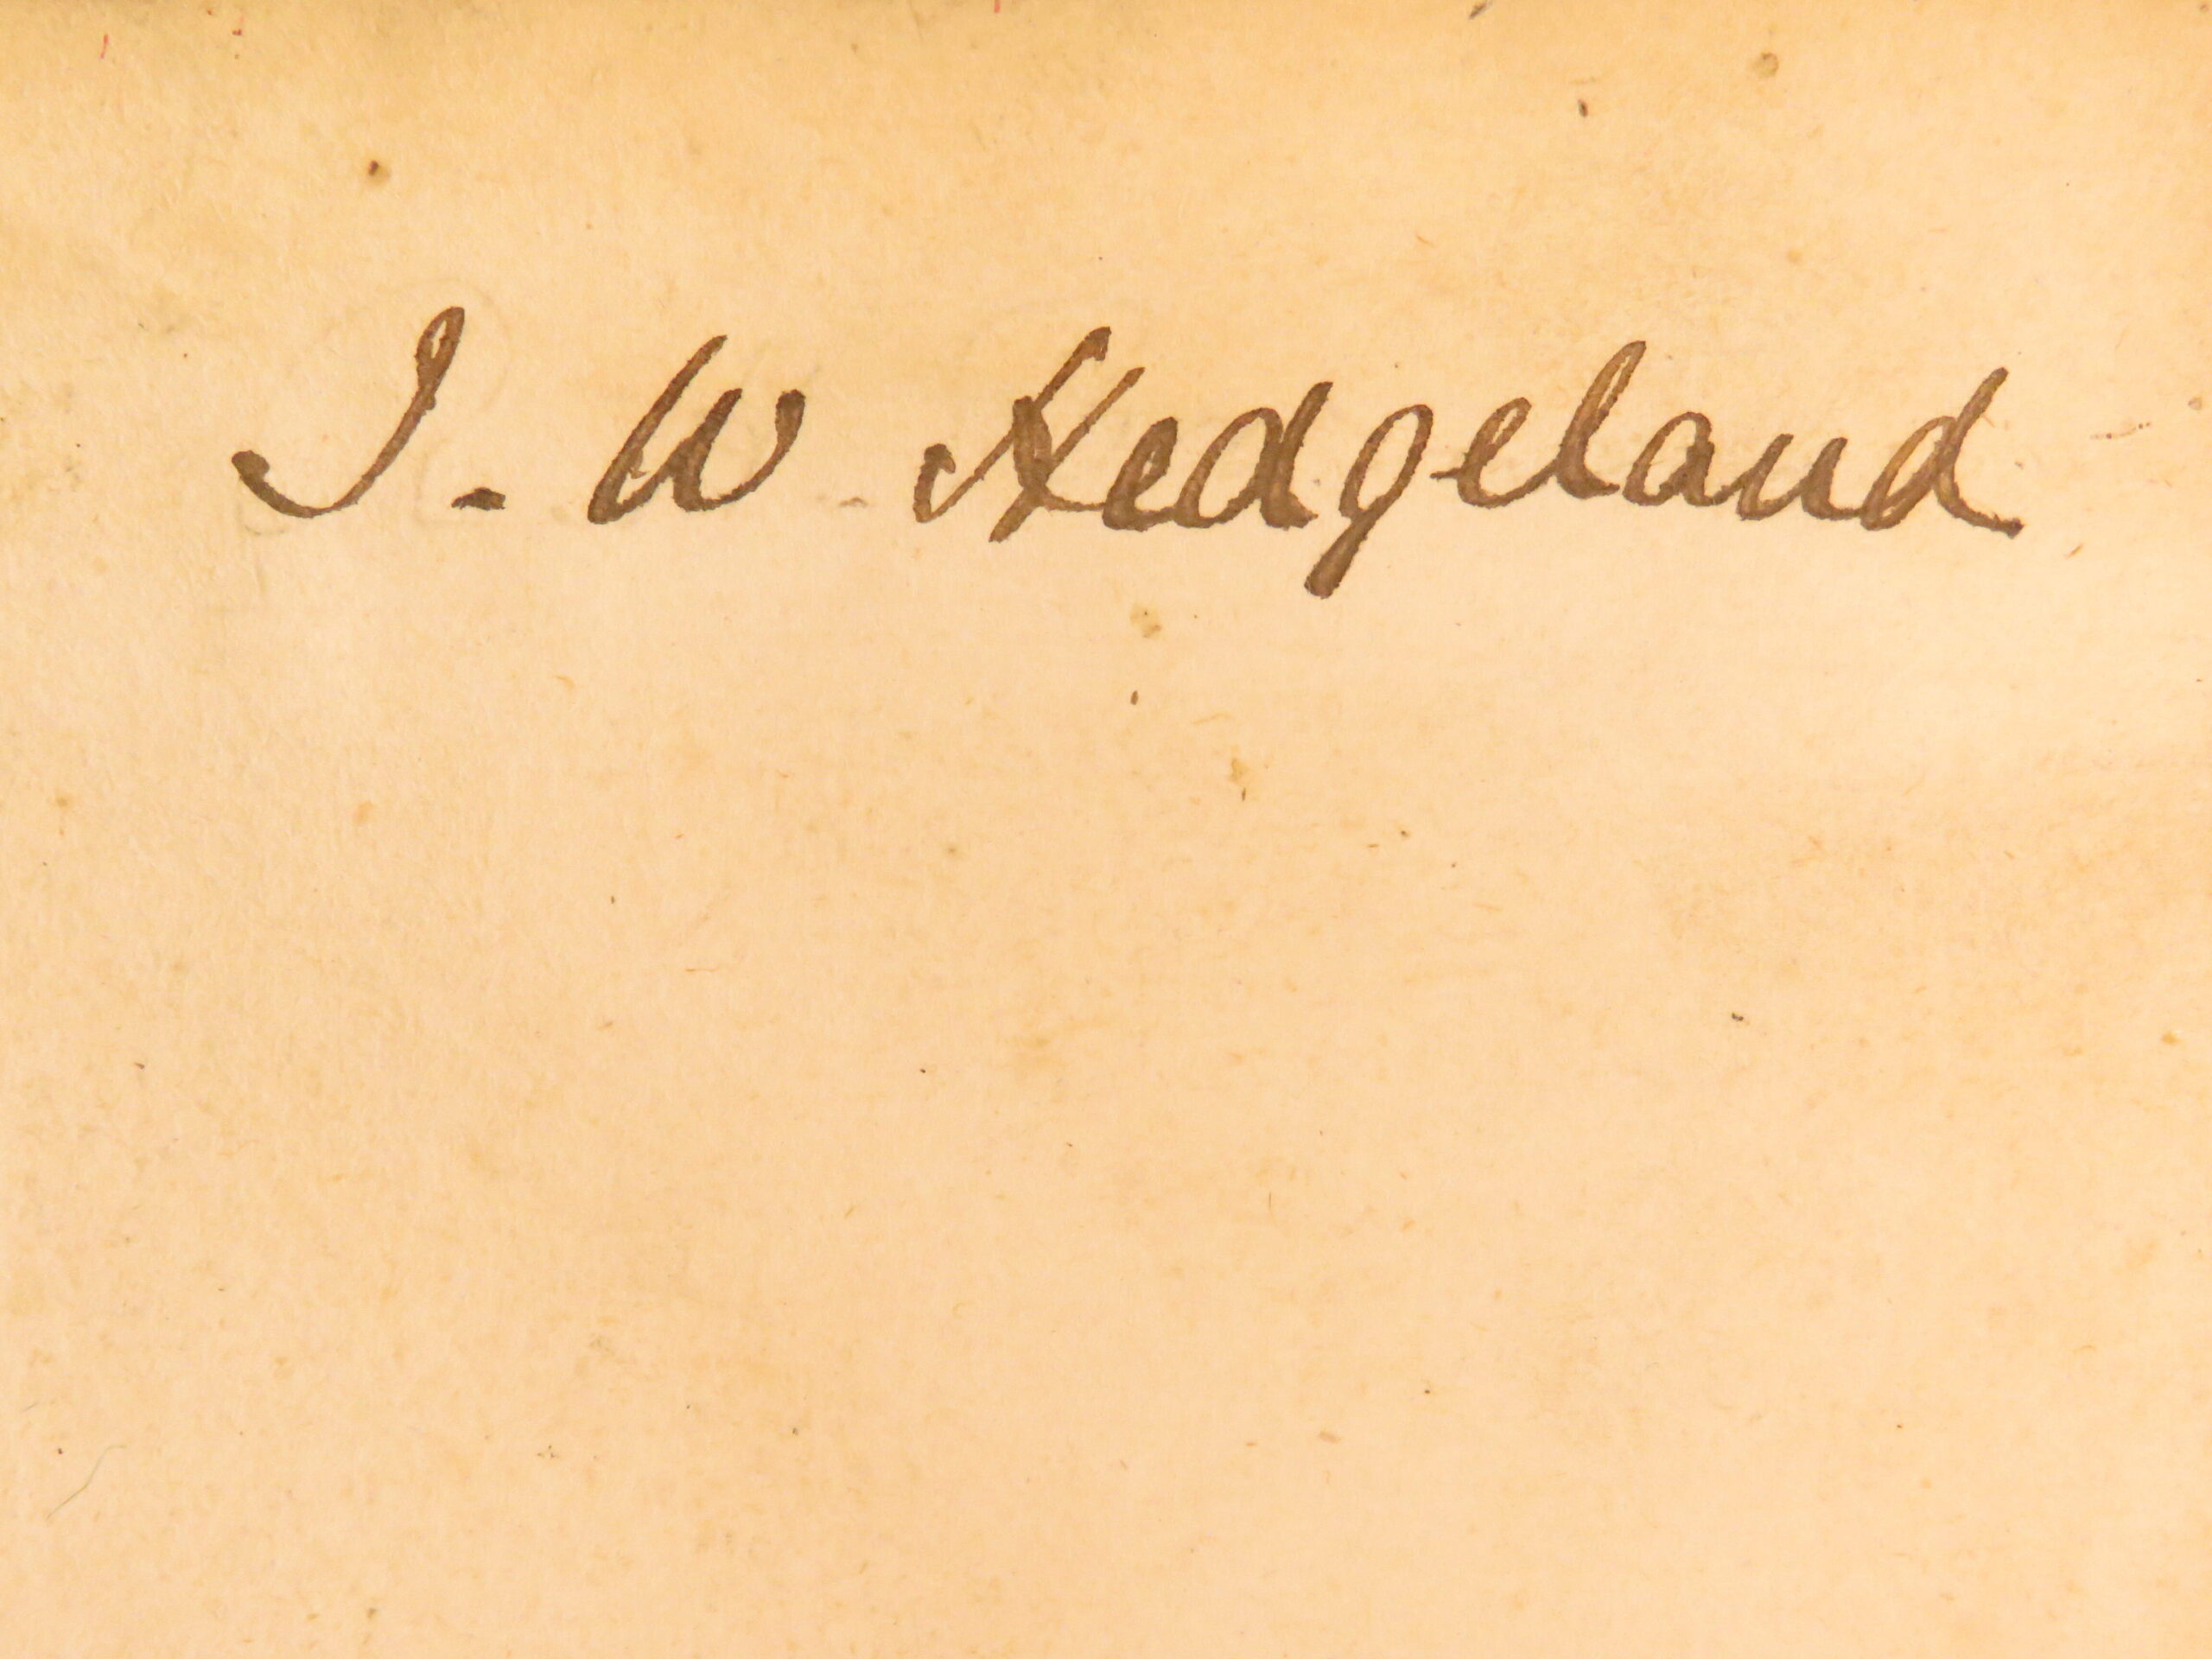 I. W. Hedgeland